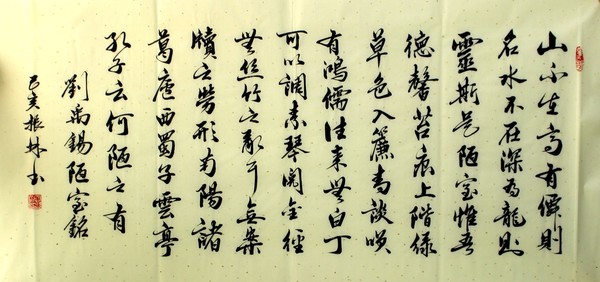 山不在高有僊則
名水不在深有龍則
靈斯是陋室惟吾
德馨苔痕上階綠
草色入簾青談咲
有鴻儒往來無白丁
可以調素琴閱金經
無絲竹之亂耳無案
牘之勞形南陽諸
葛廬西蜀子雲亭
孔子云何陋之有
劉禹錫陋室銘
己亥振林书